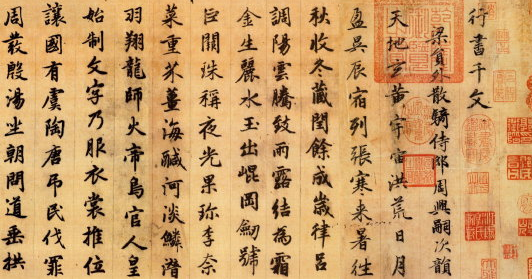 行書千文
梁員外散騎侍郎周興嗣次韻
天地玄黃宇宙洪荒日月
盈昃辰宿列張寒来暑往
秋收冬藏閏餘成歲律呂
調陽雲騰致雨露結為霜
金生麗水玉出崐岡劒號
巨闕珠稱夜光果珍李柰
菜重芥薑海鹹河淡鱗潛
羽翔龍師火帝鳥官人皇
始制文字乃服衣裳推位
讓國有虞陶唐弔民伐罪
周發殷湯坐朝問道垂拱